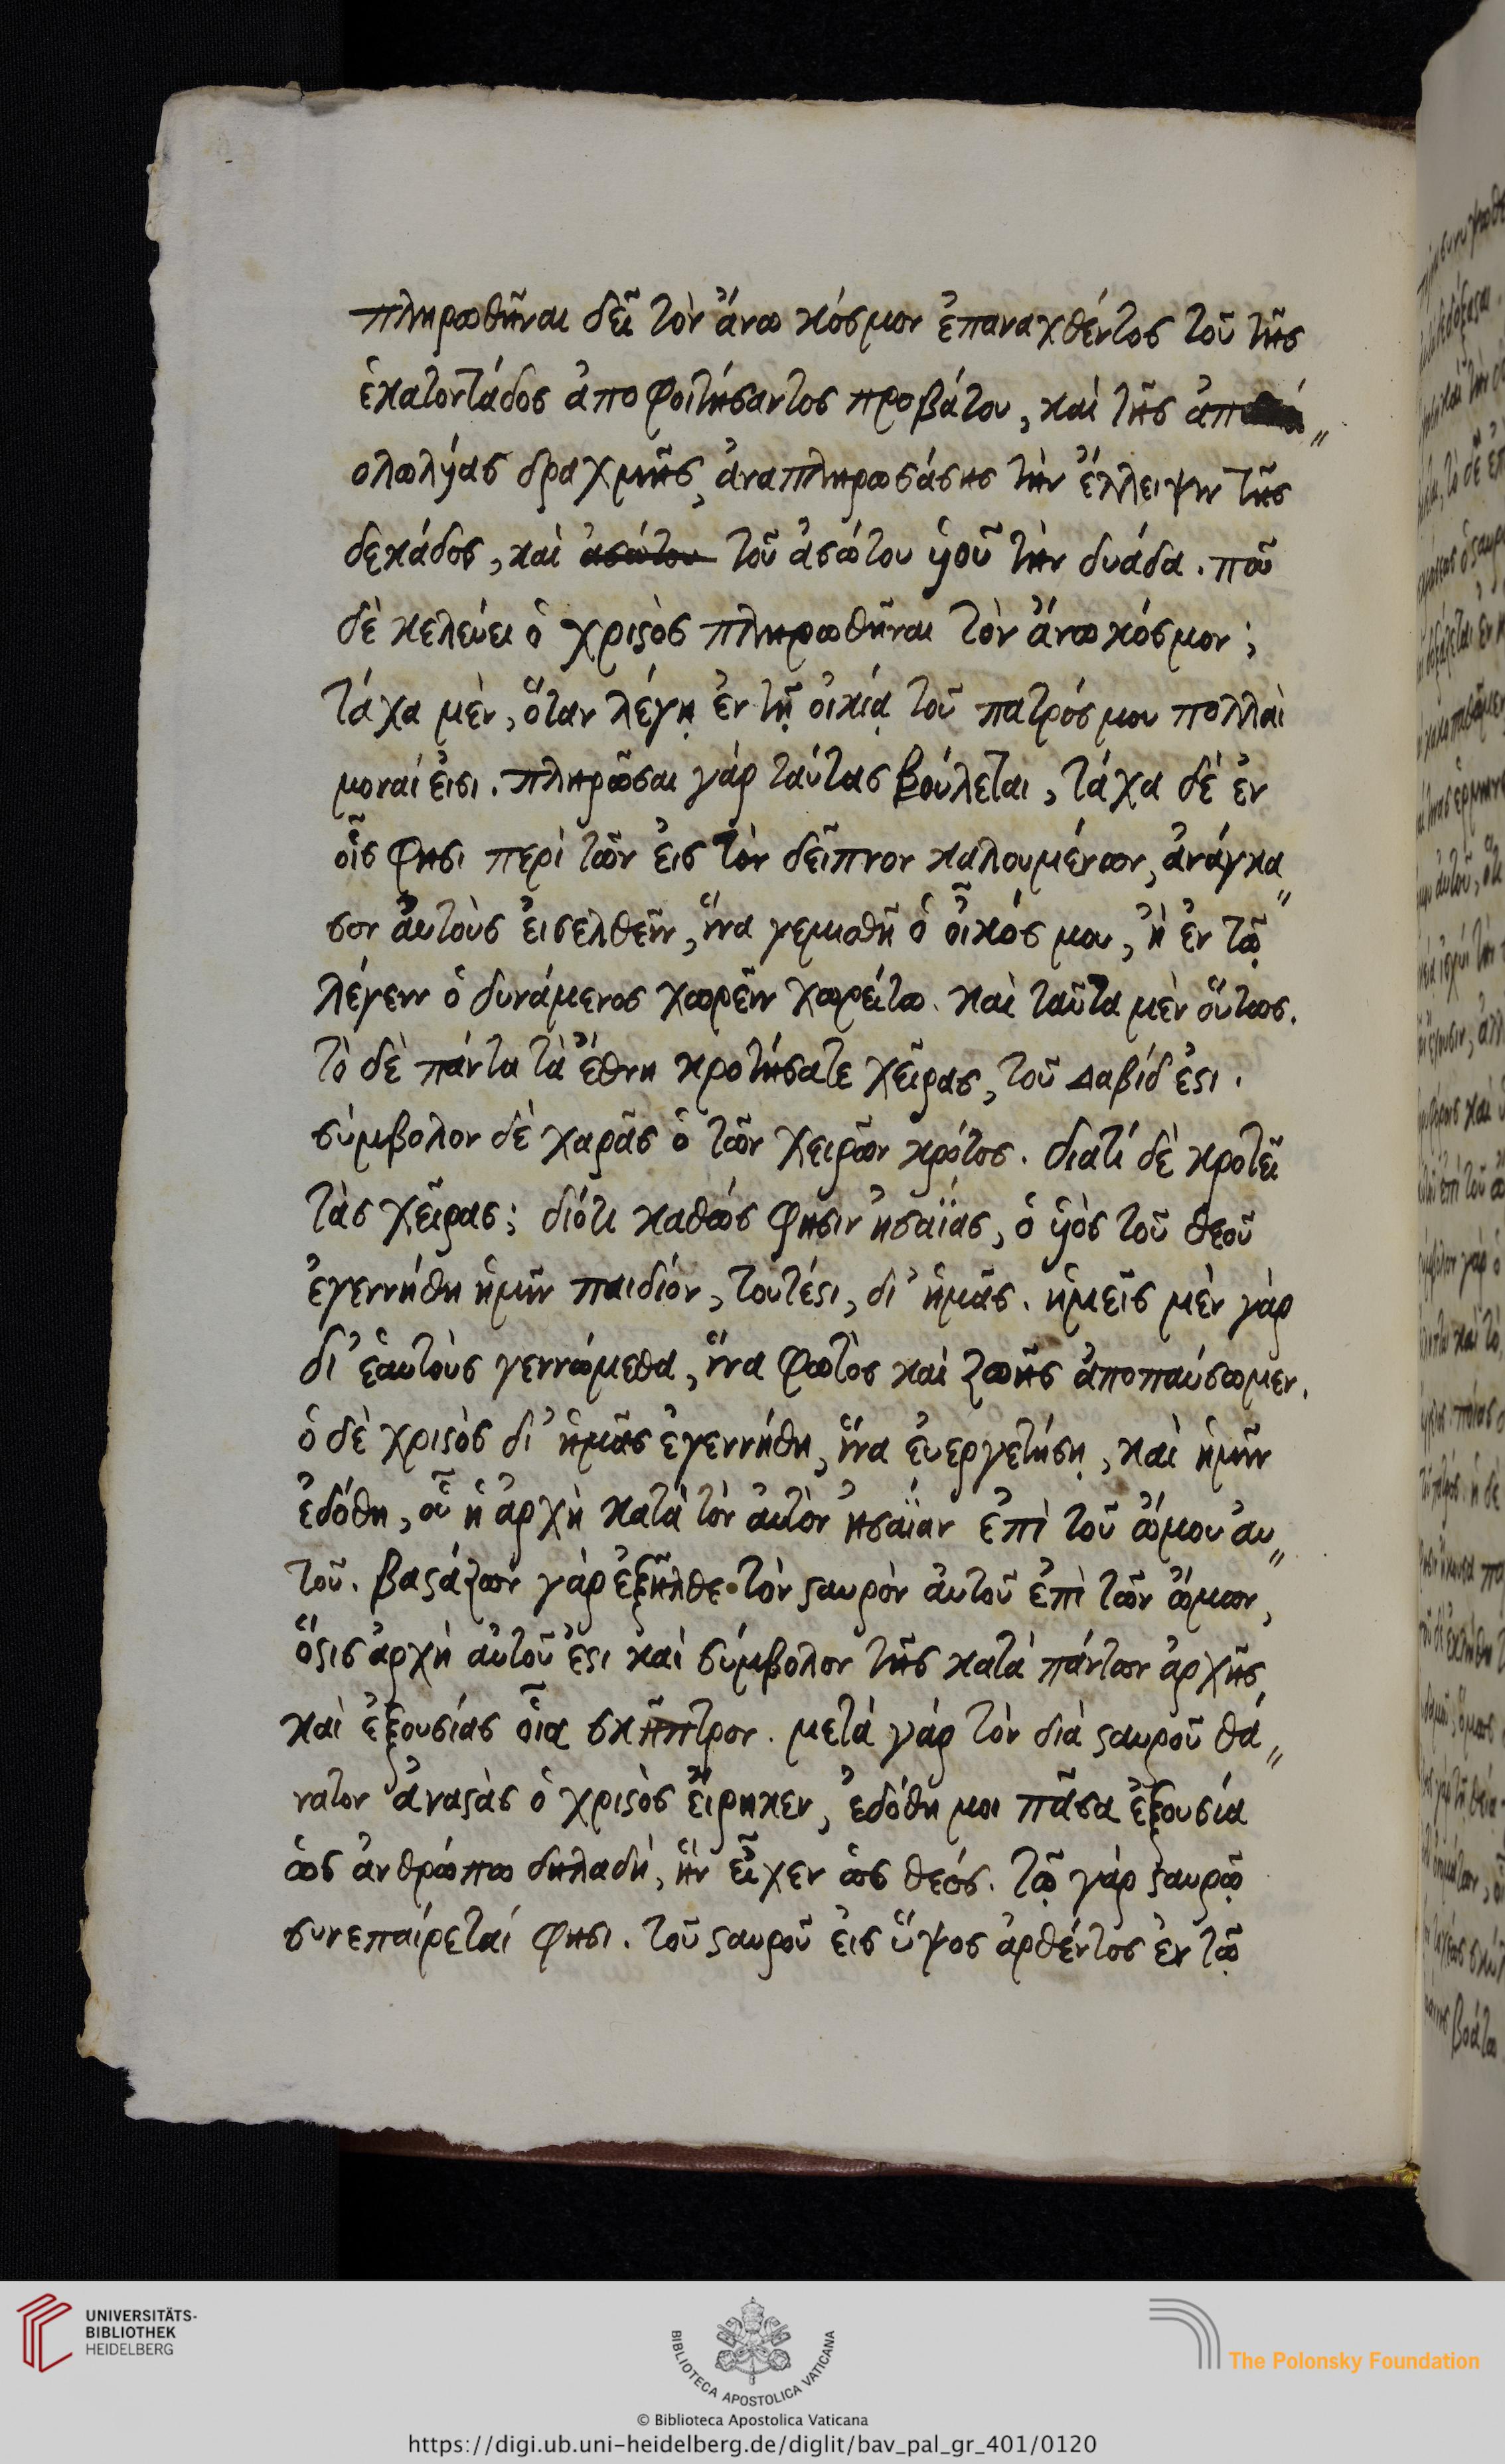 πληρωθῆναι δεῖ τὸν ἄνω κόσμον ἐπαναχθέντος τοῦ τῆς
ἑκατοντάδος ἀποφοιτήσαντος προβάτου, καὶ τῆς ἀπ
ολωλύας δραχμῆς, ἀναπληρωσάσης τὴν ἔλλειψιν τῆς
δεκάδος, καὶ ἀσώτου τοῦ ἀσώτου ὑοῦ τὴν δυάδα. ποῦ
δὲ κελεύει ὁ χριστὸς πληρωθῆναι τὸν ἄνω κόσμον;
τάχα μὲν, ὅταν λέγῃ ἐν τῇ οἰκίᾳ τοῦ πατρός μου πολλαὶ
μοναί εἰσι. πληρῶσαι γάρ ταύτας βούλεται, τάχα δὲ ἐν
οἷς φησι περὶ τῶν εἰς τὸν δεῖπνον καλουμένων, ἀνάγκα〃
σον αὐτοὺς εἰσελθεῖν, ἵνα γεμισθῆ ὁ οἶκός μου, ἢ ἐν τῷ
λέγειν ὁ δυνάμενος χωρεῖν χωρείτω. καὶ ταῦτα μὲν οὕτως.
τὸ δὲ πάντα τὰ ἔθνη κροτήσατε χεῖρας, τοῦ Δαβίδ ἐστι.
σύμβολον δὲ χαρᾶς ὁ τῶν χειρῶν κρότος. διατί δὲ κροτεῖ
τὰς χεῖρας; διότι καθώς φησιν ἠσαΐας, ὁ ὑὸς τοῦ θεοῦ
ἐγεννήθη ἡμῖν παιδίον, τουτέστι, δι' ἡμᾶς. ἡμεῖς μὲν γὰρ
δι' ἑαυτοὺς γεννώμεθα, ἵνα φωτὸς καὶ ζωῆς ἀποπαύσωμεν.
ὁ δὲ χριστὸς δι' ἡμᾶς ἐγεννήθη, ἵνα εὐεργετήσῃ, καὶ ἡμῖν
ἐδόθη, οὗ ἡ ἀρχὴ κατὰ τὸν αὐτὸν ἠσαΐαν ἐπὶ τοῦ ὤμου αυ〃
τοῦ. βαστάζων γὰρ ἐξῆλθε τὸν σταυρὸν αὐτοῦ ἐπὶ τῶν ὤμων,
ὅστις ἀρχὴ αὐτοῦ ἐστι καὶ σύμβολον τῆς κατὰ πάντων ἀρχῆς
καὶ ἐξουσίας οἷα σκῆπτρον. μετὰ γὰρ τὸν διὰ σταυροῦ θά〃
νατον ἀναστὰς ὁ χριστὸς εἴρηκεν, ἐδόθη μοι πᾶσα ἐξουσία
ὡς ἀνθρώπω δηλαδὴ, ἣν εἶχεν ὡς θεός. τῷ γὰρ σταυρῷ
συνεπαίρεταί φησι. τοῦ σταυροῦ εἰς ὕψος ἀρθέντος ἐν τῷ
UNIVERSITÄTS-
BIBLIOTHEK
HEIDELBERG
BIBLIOTECA APOSTOLICA VATICANA
The Polonsky Foundation
© Biblioteca Apostolica Vaticana
https://digi.ub.uni-heidelberg.de/diglit/bav_pal_gr_401/0120